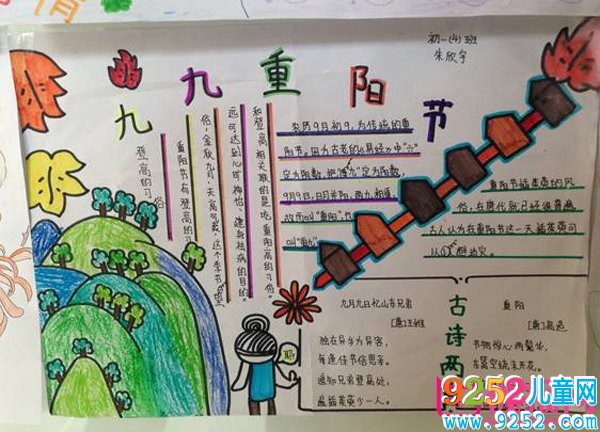 初一(4)班
朱欣宇
九九重阳节
登高的习俗
重阳节有登高的习
俗，金秋九月，天高气爽，这个季节登
远可达到心旷神怡、健身祛病的目的。
和登高相关联的是吃重阳高的习俗。
农历9月初9，为传统的重
阳节，因为古老的《易经》中"六"
定为阴数，把"九"定为阳数，
9月9日，日月并阳，两九相重，
故而叫"重阳"，也
叫"重九"
重阳节插茱萸的风
俗，在唐代就已经很普遍
古人认为在重阳节这一天插茱萸可
以避难消灾。
古诗两
九月九日忆山东兄弟
[唐]王维
独在异乡为异客，
每逢佳节倍思亲。
遥知兄弟登高处，
遍插茱萸少一人。
重阳
[唐]高适
节物惊心两鬓华，
东篱空绕未开花。
耶
9252儿童网
www.9252.com